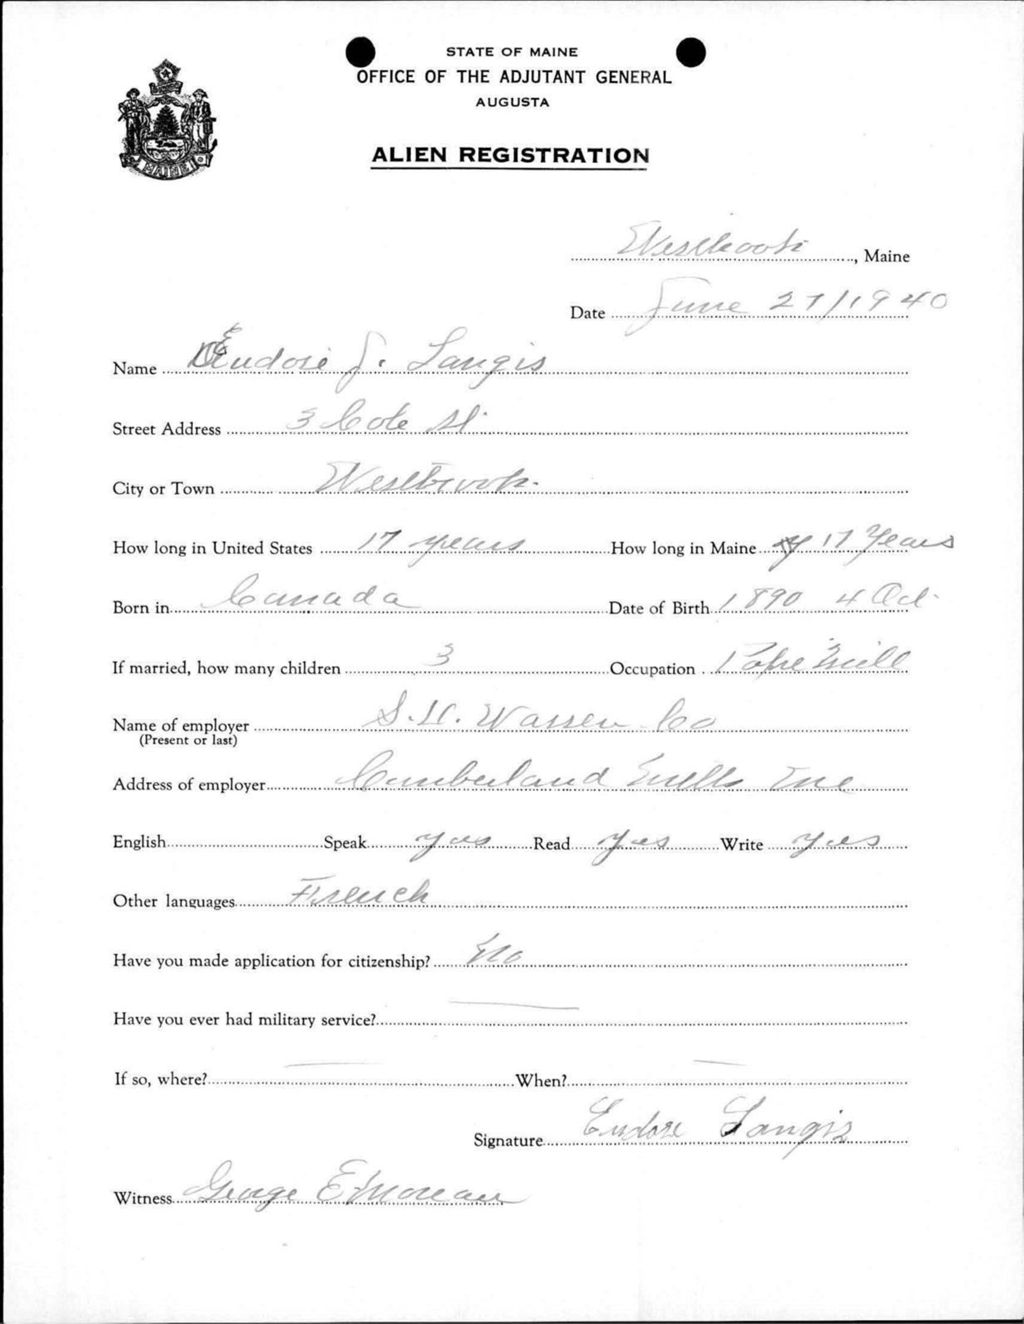 STATE OF MAINE
OFFICE OF THE ADJUTANT GENERAL
AUGUSTA
ALIEN REGISTRATION
MAINE
Westbrook, Maine
Date June 27/1940
Name Eudore J. Langis
Street Address 3 Cole St.
City or Town Westbrook.
How long in United States 17 years How long in Maine 17 Years
Born in Canada Date of Birth 1890 4 Oct.
If married, how many children 3 Occupation Mill
Name of employer S. Warren Co
(Present or last)
Address of employer Cumberland Mills Inc
English Speak yes Read yes Write yes
Other languages French
Have you made application for citizenship? No
Have you ever had military service?
If so, where? When?
Signature Eudore Langis
Witness George E Moreau